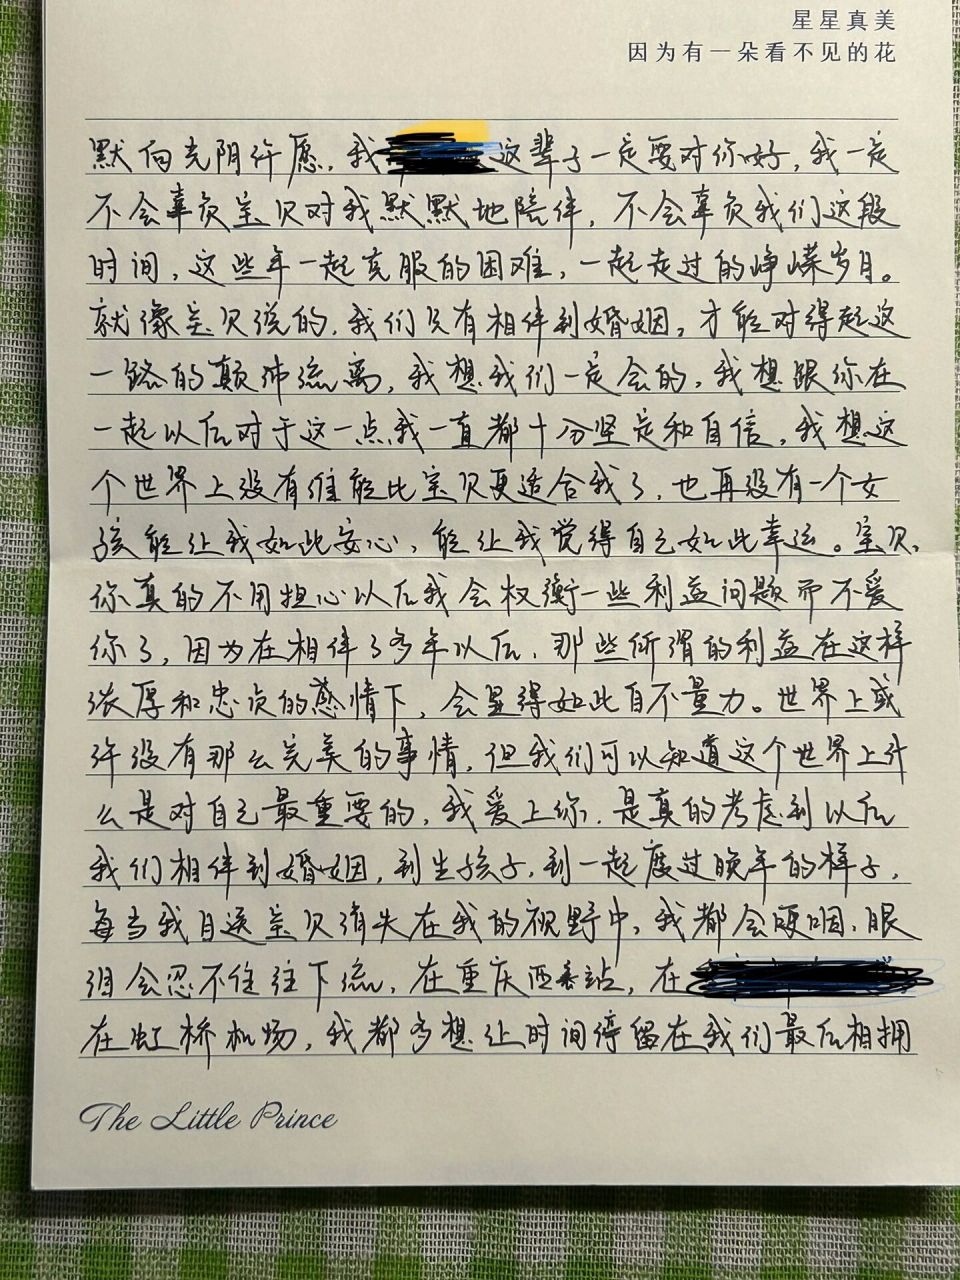 星星真美
因为有一朵看不见的花
默向光阴许愿，我这辈子一定要对你好，我一定
不会辜负宝贝对我默默地陪伴，不会辜负我们这段
时间，这些年一起克服的困难，一起走过的峥嵘岁月。
就像宝贝说的，我们只有相伴到婚姻，才能对得起这
一路的颠沛流离，我想我们一定会的，我想跟你在
一起以后对于这一点我一直都十分坚定和自信，我想这
个世界上没有谁能比宝贝更适合我了，也再没有一个女
孩能让我如此安心，能让我觉得自己如此幸运。宝贝，
你真的不用担心以后我会权衡一些利益问题而不爱
你了，因为在相伴了多年以后，那些所谓的利益在这样
浓厚和忠贞的感情下，会显得如此自不量力。世界上或
许没有那么完美的事情，但我们可以知道这个世界上什
么是对自己最重要的，我爱上你，是真的考虑到以后
我们相伴到婚姻，到生孩子，到一起度过晚年的样子，
每当我目送宝贝消失在我的视野中，我都会哽咽，眼
泪会忍不住往下流，在重庆西站，在
在虹桥机场，我都多想让时间停留在我们最后相拥
The Little Prince